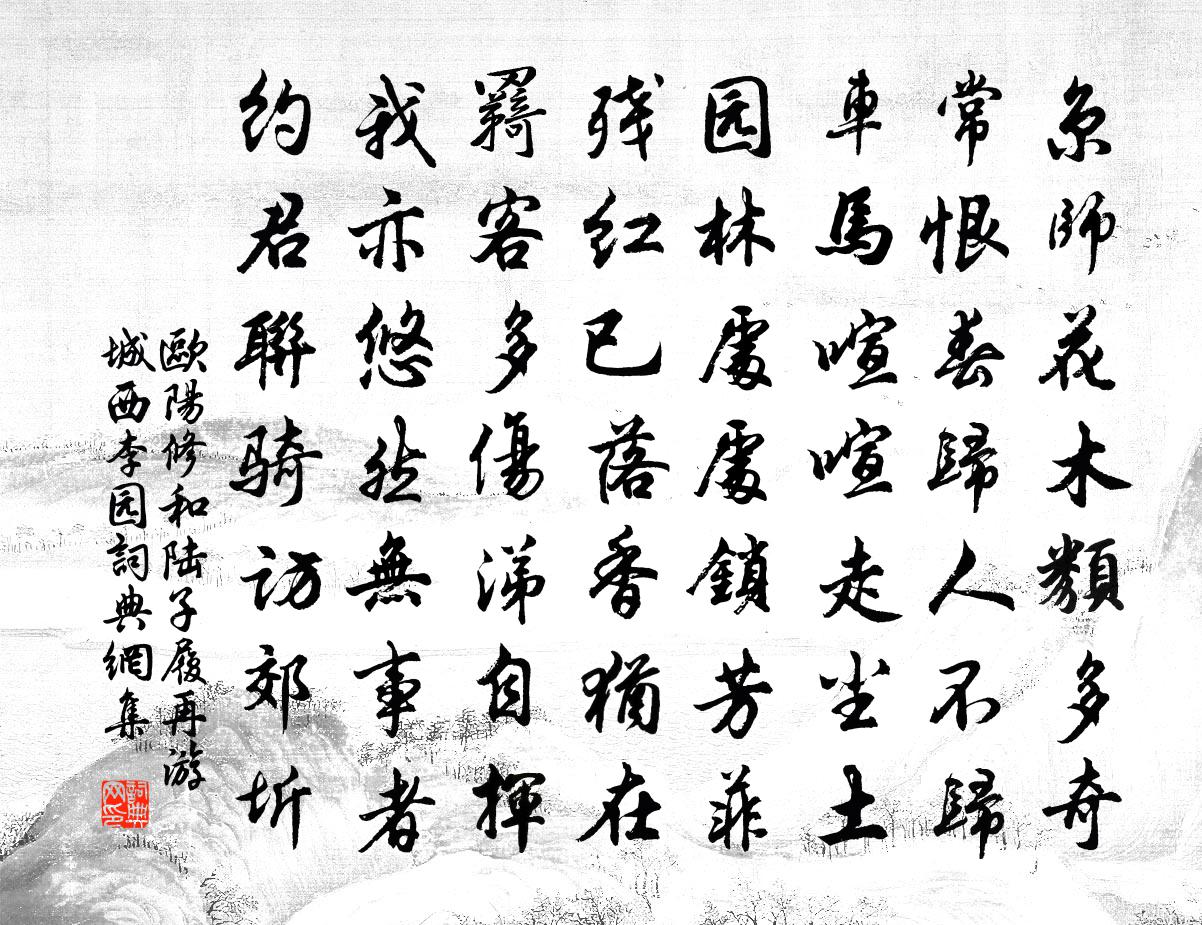 京師花木類多奇
常恨春歸人不歸
車馬喧喧走尘土
园林處處鎖芳菲
残红已落香猶在
羇客多傷涕自揮
我亦悠然無事者
约君聯骑访郊圻
歐陽修和陆子履再游
城西李园詞典網集
詞典网印